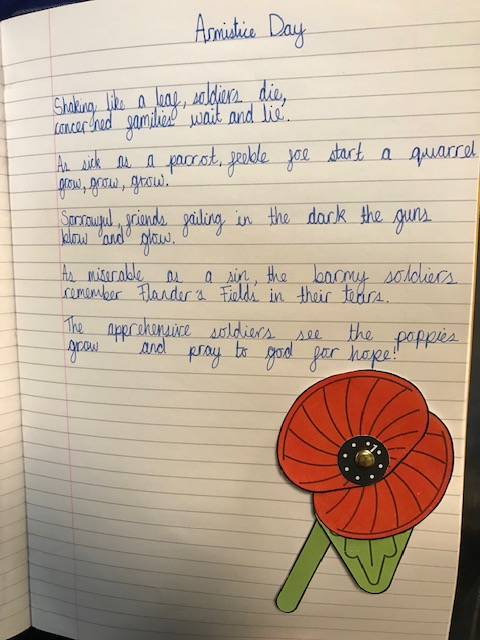 Armistice Day
Shaking like a leaf, soldiers die,
concerned families wait and lie.
As sick as a parrot, feeble foe start a quarrel
grow, grow, grow.
Sorrowful, friends failing in the dark the guns
blow and glow.
As miserable as a sin, the barmy soldiers
remember Flander's Fields in their tears.
The apprehensive soldiers see the poppies
grow and pray to god for hope!